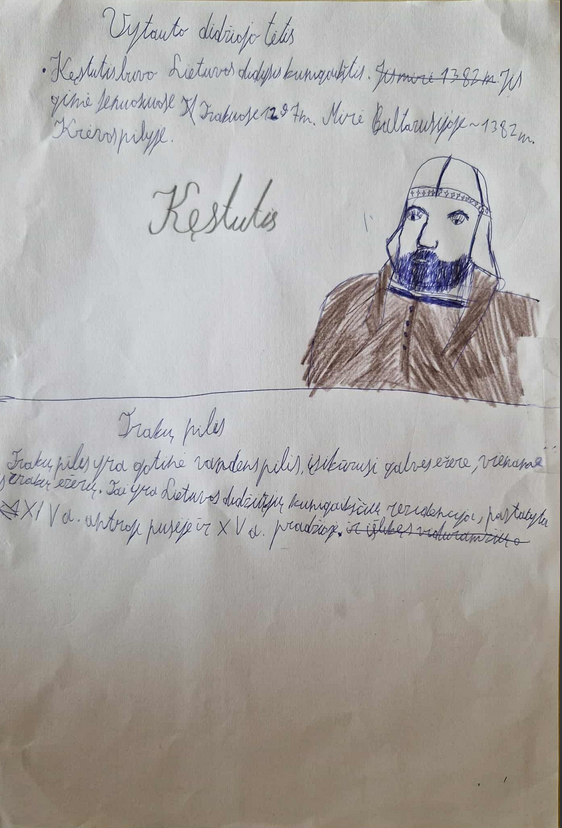 Vytauto didžiojo tėtis
• Kęstutis buvo Lietuvos didysis kunigaikštis. Jis mirė 1382 m Jis
gimė Senuosiuose Trakuose 1297m. Mirė Baltarusijoje ~ 1382m.
Krėvos pilyje.
Kęstutis
Trakų pilis
Trakų pilis yra gotinė vandens pilis, įsikūrusi galvės ežere, viename
iš Trakų ežerų. Tai yra Lietuvos didžiųjų kunigaikščių rezidencija, pastatyta
XIV a. antroje pusėje ir XV a. pradžioje.